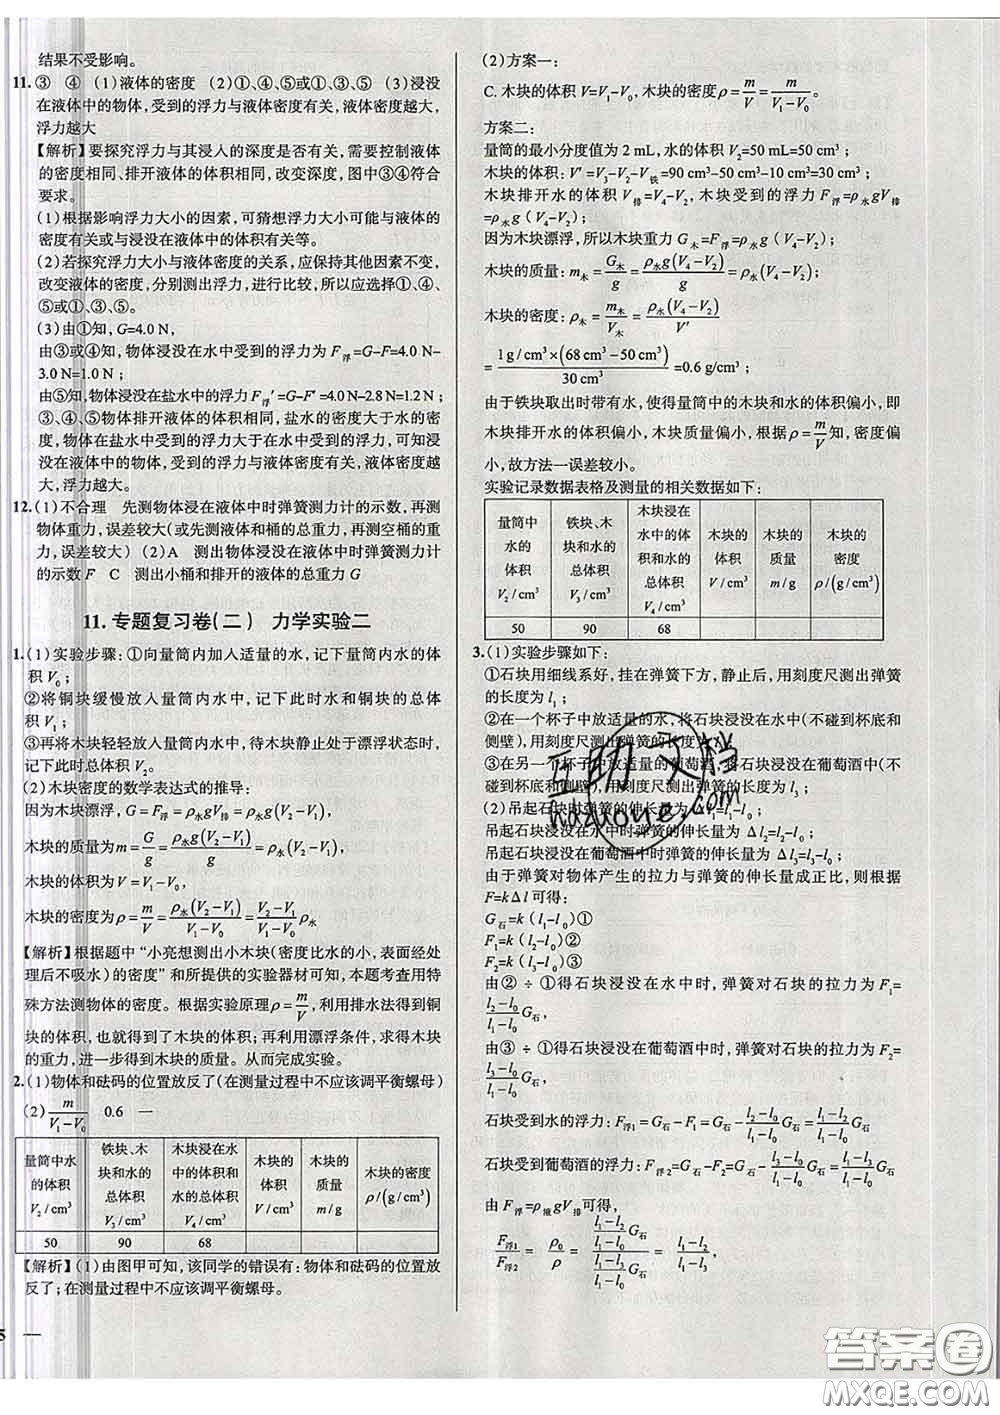 结果不受影响。
11. ③ ④ (1)液体的密度 (2)①、④、⑤或①、③、⑤ (3)浸没
在液体中的物体,受到的浮力与液体密度有关,液体密度越大,
浮力越大
【解析】要探究浮力与其浸入的深度是否有关,需要控制液体
的密度相同、排开液体的体积相同,改变深度,图中③④符合
要求。
(1)根据影响浮力大小的因素,可猜想浮力大小可能与液体的
密度有关或与浸没在液体中的体积有关等。
(2)若探究浮力大小与液体密度的关系,应保持其他因素不变,
改变液体的密度,分别测出浮力,进行比较,所以应选择①、④、
⑤或①、③、⑤。
(3)由①知,G=4.0 N,
由③或④知,物体浸没在水中受到的浮力为 F浮=G–F=4.0 N–
3.0 N=1.0 N;
由⑤知,物体浸没在盐水中的浮力 F浮′=G–F′=4.0 N–2.8 N=1.2 N;
③、④、⑤物体排开液体的体积相同,盐水的密度大于水的密
度,物体在盐水中受到的浮力大于在水中受到的浮力,可知浸
没在液体中的物体,受到的浮力与液体的密度有关,液体密度越
大,浮力越大。
12. (1)不合理 先测物体浸在液体中时弹簧测力计的示数,再测
物体重力,误差较大(或先测液体和桶的总重力,再测空桶的重
力,误差较大) (2)A 测出物体浸没在液体中时弹簧测力计
的示数 F C 测出小桶和排开的液体的总重力 G
11. 专题复习卷(二) 力学实验二
1. (1)实验步骤:①向量筒内加入适量的水,记下量筒内水的体
积 V₀;
②将铜块缓慢放入量筒内水中,记下此时水和铜块的总体
积 V₁;
③再将木块轻轻放入量筒内水中,待木块静止处于漂浮状态时,
记下此时总体积 V₂。
(2)木块密度的数学表达式的推导:
因为木块漂浮, G = F浮 = ρ水gV排 = ρ水g(V₂–V₁)
木块的质量为 m = G/g = ρ水g(V₂–V₁)/g = ρ水(V₂–V₁),
木块的体积为 V = V₁–V₀,
木块的密度为 ρ = m/V = ρ水(V₂–V₁)/(V₁–V₀) = (V₂–V₁)/(V₁–V₀) ρ水
【解析】根据题中“小亮想测出小木块(密度比水的小,表面经处
理后不吸水)的密度”和所提供的实验器材可知,本题考查用特
殊方法测物体的密度。根据实验原理 ρ = m/V,利用排水法得到铜
块的体积,也就得到了木块的体积;再利用漂浮条件,求得木块
的重力,进一步得到木块的质量。从而完成实验。
2. (1)物体和砝码的位置放反了(在测量过程中不应该调平衡螺母)
(2) m/(V₁–V₀) 0.6 一
量筒中水的体积 V₂/cm³ 铁块、木块和水的总体积 V₃/cm³ 木块浸在水中的体积和水的总体积 V₄/cm³ 木块的体积 V/cm³ 木块的质量 m/g 木块的密度 ρ/(g/cm³)
50 90 68
【解析】(1)由图甲可知,该同学的错误有:物体和砝码的位置放
反了;在测量过程中不应该调平衡螺母。
5 —
(2)方案一:
C. 木块的体积 V=V₁–V₀,木块的密度 ρ = m/V = m/(V₁–V₀)。
方案二:
量筒的最小分度值为 2 mL,水的体积 V₂=50 mL=50 cm³;
木块的体积: V′ =V₃–V₂–V铁=90 cm³–50 cm³–10 cm³=30 cm³;
木块排开水的体积 V排=V₄–V₂,木块受到的浮力 F浮=ρ水gV排
=ρ水g(V₄–V₂)
因为木块漂浮,所以木块重力 G木=F浮=ρ水g(V₄–V₂)
木块的质量: m木 = G木/g = ρ水g(V₄–V₂)/g = ρ水(V₄–V₂)
木块的密度: ρ木 = m木/V木 = ρ水(V₄–V₂)/V′
= 1 g/cm³×(68 cm³–50 cm³)/30 cm³ =0.6 g/cm³
由于铁块取出时带有水,使得量筒中的木块和水的体积偏小,即
木块排开水的体积偏小,木块质量偏小,根据 ρ = m/V 知,密度偏
小,故方法一误差较小。
实验记录数据表格及测量的相关数据如下:
量筒中水的体积 V₂/cm³ 铁块、木块和水的总体积 V₃/cm³ 木块浸在水中的体积和水的总体积 V₄/cm³ 木块的体积 V/cm³ 木块的质量 m/g 木块的密度 ρ/(g/cm³)
50 90 68
3. (1)实验步骤如下:
①石块用细线系好,挂在弹簧下方,静止后,用刻度尺测出弹簧
的长度为 l₁;
②在一个杯子中放适量的水,将石块浸没在水中(不碰到杯底和
侧壁),用刻度尺测出弹簧的长度为 l₂;
③在另一个杯子中放适量的葡萄酒,将石块浸没在葡萄酒中(不
碰到杯底和侧壁),用刻度尺测出弹簧的长度为 l₃;
(2)吊起石块时弹簧的伸长量为 Δl₁=l₁–l₀;
吊起石块浸没在水中时弹簧的伸长量为 Δl₂=l₂–l₀;
吊起石块浸没在葡萄酒中时弹簧的伸长量为 Δl₃=l₃–l₀;
由于弹簧对物体产生的拉力与弹簧的伸长量成正比,则根据
F=kΔl 可得:
G石=k(l₁–l₀)①
F₁=k(l₂–l₀)②
F₂=k(l₃–l₀)③
由②÷①得石块浸没在水中时,弹簧对石块的拉力为 F₁=
(l₂–l₀)/(l₁–l₀) G石;
由③÷①得石块浸没在葡萄酒中时,弹簧对石块的拉力为 F₂=
(l₃–l₀)/(l₁–l₀) G石;
石块受到水的浮力: F浮1=G石–F₁=G石– (l₂–l₀)/(l₁–l₀) G石= (l₁–l₂)/(l₁–l₀) G石
石块受到葡萄酒的浮力: F浮2=G石–F₂=G石– (l₃–l₀)/(l₁–l₀) G石= (l₁–l₃)/(l₁–l₀) G石
由 F浮=ρ液gV排可得,
F浮1/F浮2 = ρ₀/ρ = ((l₁–l₂)/(l₁–l₀) G石)/((l₁–l₃)/(l₁–l₀) G石) = (l₁–l₂)/(l₁–l₃)
互助文档
hazuoye.com
答案圈
MXQE.COM